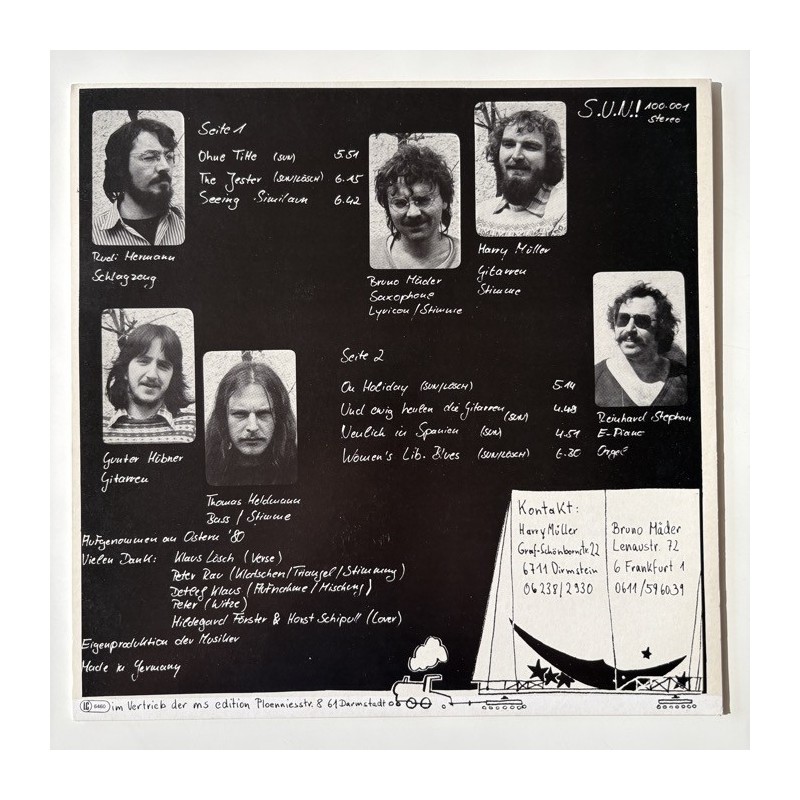 S.U.N.! 100.001
Stereo
Seite 1
Ohne Title (SUN) 5.51
The Jester (SUN/LÖSCH) 6.15
Seeing Similaun 6.42
Rudi Hermann
Schlagzeug
Bruno Mäder
Saxophone
Lyricon/Stimme
Harry Müller
Gitarren
Stimme
Seite 2
On Holiday (SUN/LÖSCH) 5.14
Und ewig heulen die Gitarren (SUN) 4.48
Neulich in Spanien (SUN) 4.51
Women's Lib. Blues (SUN/LÖSCH) 6.30
Reinhard Stephan
E-Piano
Orgel
Gunter Hübner
Gitarren
Thomas Heldmann
Bass / Stimme
Aufgenommen an Ostern '80
Vielen Dank: Klaus Lösch (Verse)
Peter Rau (Klatschen/Triangel/Stimmung)
Detlef Klaus (Aufnahme/Mischung)
Peter (Witze)
Hildegard Förster & Horst Schipull (Cover)
Eigenproduktion der Musiker
Made in Germany
Kontakt:
Harry Müller
Graf-Schönbornstr. 22
6711 Dirmstein
06238/2930
Bruno Mäder
Lenaustr. 72
6 Frankfurt 1
0611/596039
LC 6460 im Vertrieb der ms edition Ploenniesstr. 8 61 Darmstadt